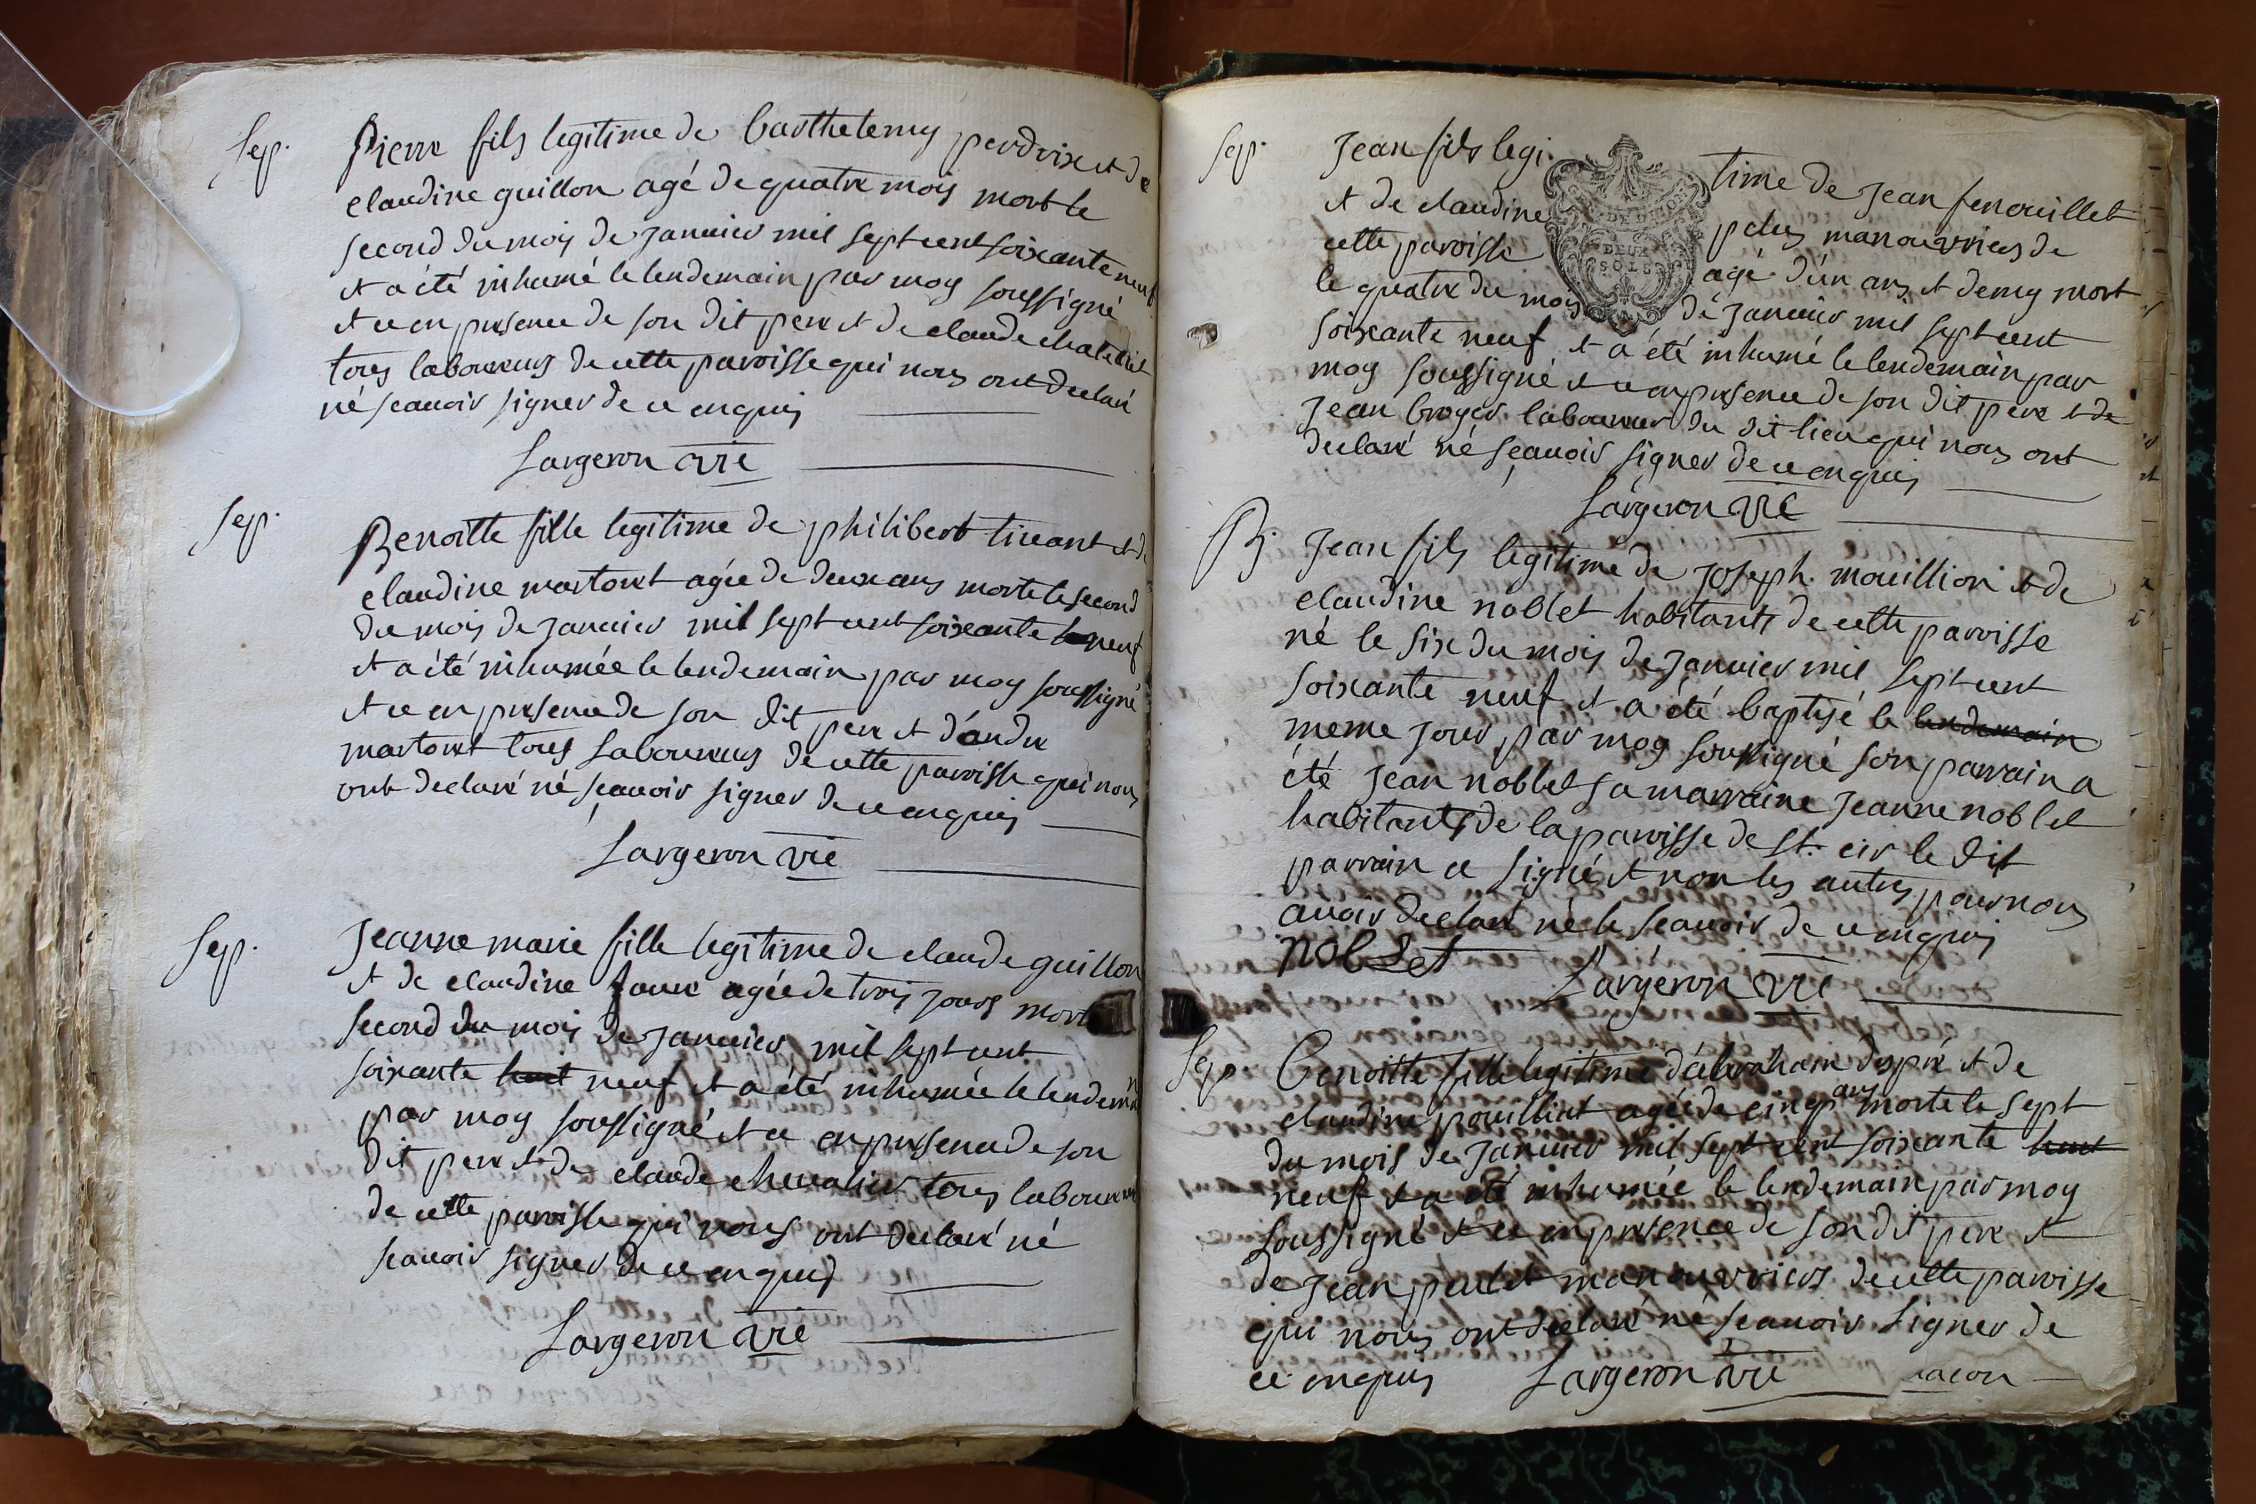 Sep.
Pierre fils legitime de barthelemy perdrix et de
claudine guillon agé de quatre mois mort le
second du mois de janvier mil sept cent soixante neuf
et a été inhumé le lendemain par moy soussigné
et ce en presence de son dit pere et de claude chatelet
tous laboureurs de cette paroisse qui nous ont declaré
né scavoir signer de ce enquis
Largeron vic
Sep.
Benoitte fille legitime de philibert et de
claudine martoret agée de deux ans morte le second
du mois de janvier mil sept cent soixante neuf
et a été inhumée le lendemain par moy soussigné
et ce en presence de son dit pere et d'andre
martoret tous laboureurs de cette paroisse qui nous
ont declaré né scavoir signer de ce enquis
Largeron vic
Sep.
Jeanne marie fille legitime de claude guillon
et de claudine agée de trois jours
second du mois de janvier mil sept cent
soixante huit neuf et a été inhumée le lendemain
par moy soussigné et ce en presence de son
dit pere et de claude chevalier tous laboureurs
de cette paroisse qui nous ont declaré né
scavoir signer de ce enquis
Largeron vic
Sep.
Jean fils legi time de Jean fenouillet
et de claudine manouvriers de
cette paroisse agé d'un ans et demy mort
le quatre du mois de janvier mil sept cent
soixante neuf et a été inhumé le lendemain par
moy soussigné et ce en presence de son dit pere et de
Jean broyer laboureur du dit lieu qui nous ont
declaré né scavoir signer de ce enquis
DEUX
SOLS
Largeron vic
B.
Jean fils legitime de joseph mouillion et de
claudine noblet habitants de cette paroisse
né le six du mois de janvier mil sept cent
soixante neuf et a été baptisé le lendemain
meme jour par moy soussigné son parrain a
été jean noblet sa marraine jeanne noblet
habitants de la paroisse de st. cir le dit
parrain a signé et non les autres pour nous
avoir declaré né le scavoir de ce enquis
noblet
Largeron vic
Sep.
Benoitte fille legitime d'abraham dupré et de
claudine agée de cinq ans morte le sept
du mois de janvier mil sept cent soixante huit
neuf et a été inhumée le lendemain par moy
soussigné et ce en presence de son dit pere et
de jean manouvriers de cette paroisse
qui nous ont declaré né scavoir signer de
ce enquis Largeron vic